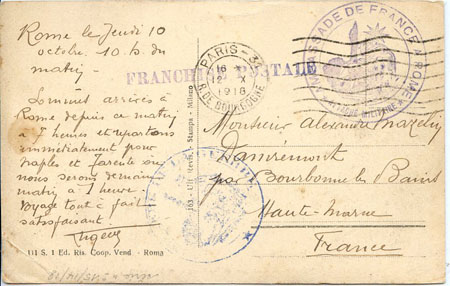 Rome le Jeudi 10
octobre. 10 h du
matin
Sommes arrivés à
Rome depuis ce matin
à 7 heures et repartons
immédiatement pour
Naples et Tarente où
nous serons demain
matin à 1 heure.
Voyage tout à fait
satisfaisant
111 S. 1 Ed. Ris. Coop. Vend - Roma
163 - Stampa - Milano
PARIS
1918
R. DE BOURGOGNE
FRANCHISE POSTALE
AMBASSADE DE FRANCE A ROME
Monsieur Alexandre
Damrémont
par Bourbonne les Bains
Haute-Marne
France